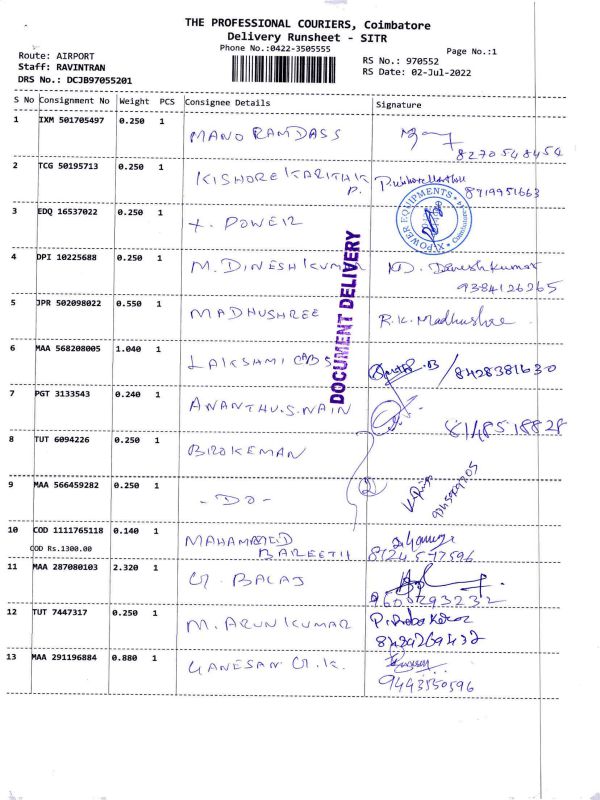 THE PROFESSIONAL COURIERS, Coimbatore
Delivery Runsheet - SITR
Phone No.:0422-3505555
Page No.:1
Route: AIRPORT
Staff: RAVINTRAN
DRS No.: DCJB97055201
RS No.: 970552
RS Date: 02-Jul-2022
S No Consignment No Weight PCS Consignee Details Signature
1 IXM 501705497 0.250 1 MANO RAMDASS
8270548454
2 TCG 50195713 0.250 1 KISHORE KARITHIK P.
8919951663
X POWER EQUIPMENTS * Coimbatore
3 EDQ 16537022 0.250 1 X. POWER
4 DPI 10225688 0.250 1 M. DINESH KUMAR D. Dineshkumar
9384126265
DOCUMENT DELIVERY
5 JPR 502098022 0.550 1 MADHUSHREE R.K. Madhushree
6 MAA 568208005 1.040 1 LAKSHMI CABS /8428381630
7 PGT 3133543 0.240 1 ANANTHU.S.NAIN
8148518828
8 TUT 6094226 0.250 1 BROKEMAN
9 MAA 566459282 0.250 1 - DO -
10 COD 1111765118 0.140 1 MAHAMMED BAREETH
COD Rs.1300.00
8124517596
11 MAA 287080103 2.320 1 G. BALAJ
9608293232
12 TUT 7447317 0.250 1 M. ARUN KUMAR
8489269432
13 MAA 291196884 0.880 1 GANESAN G.K.
9443550596